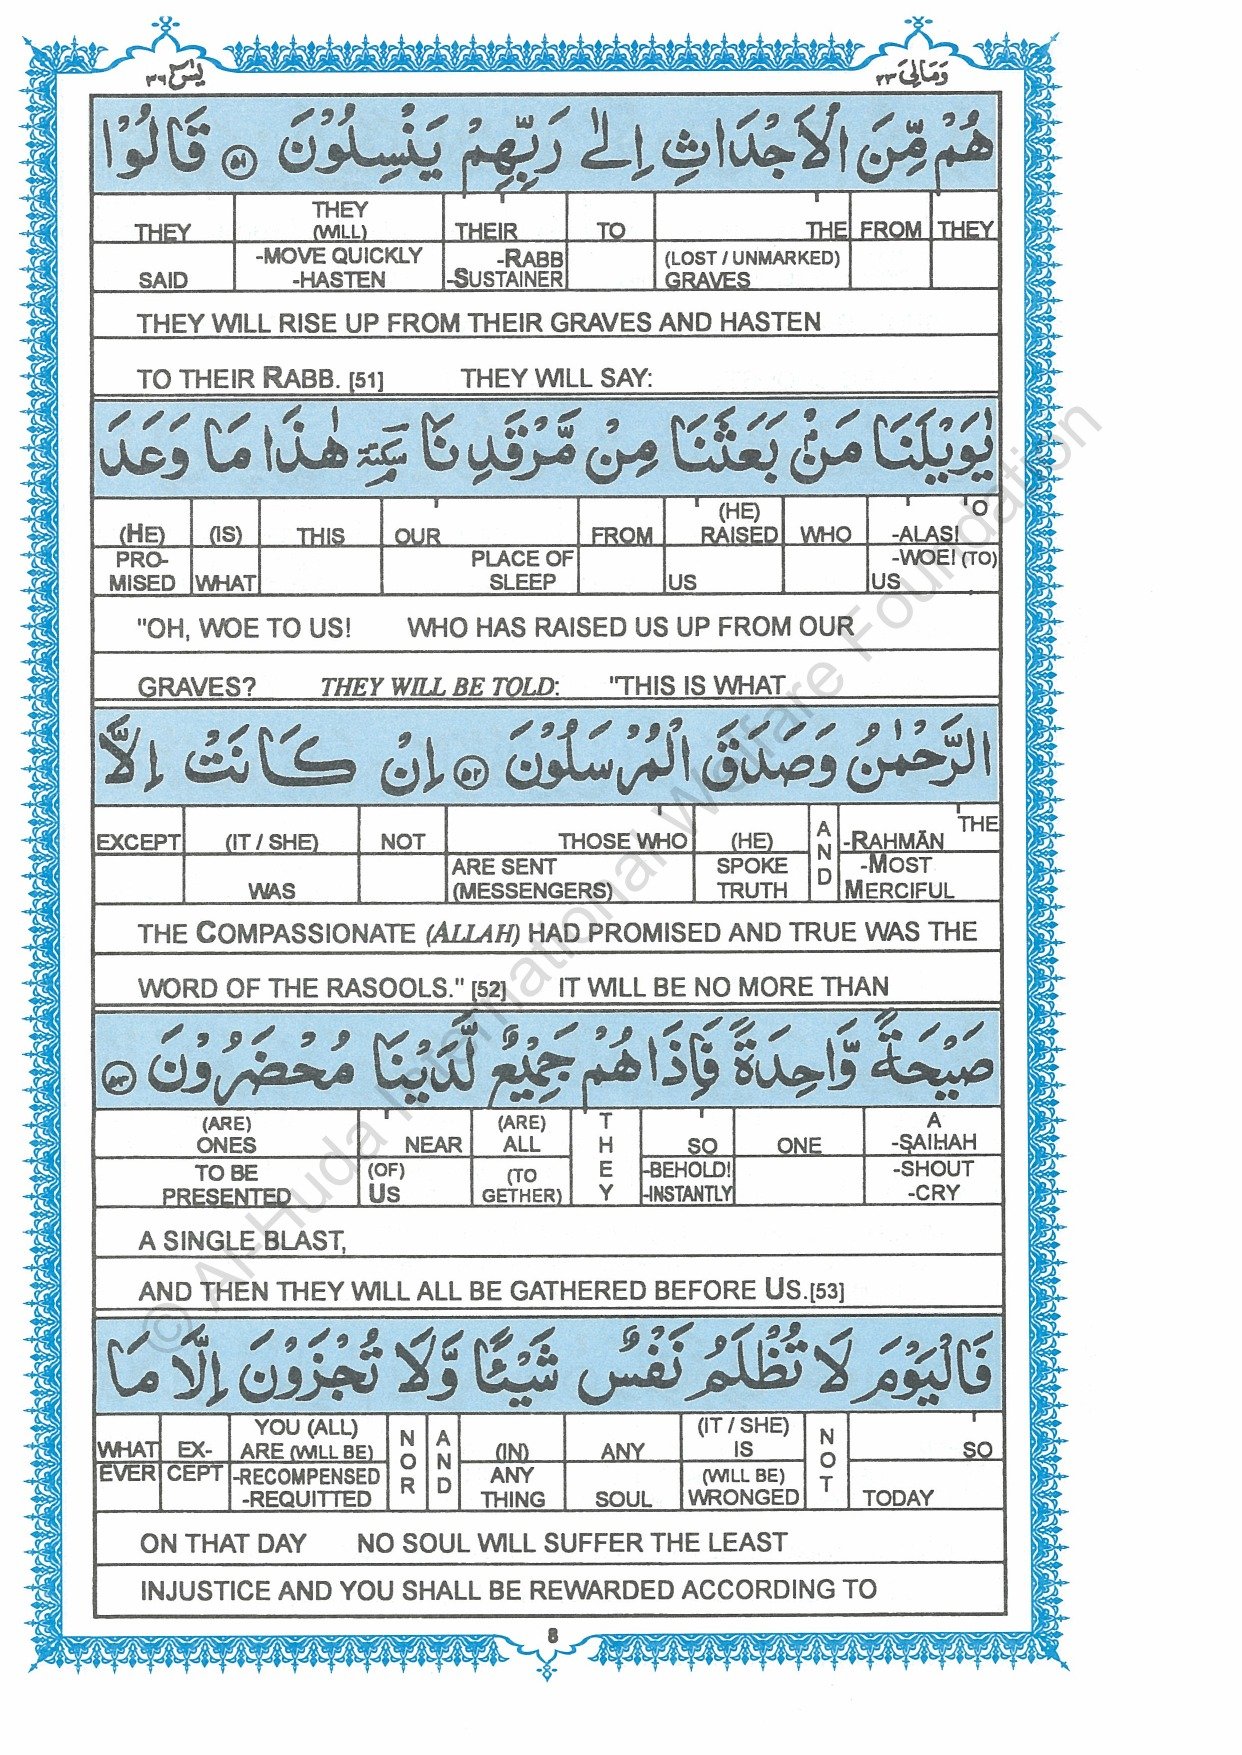 يٰسٓ ٣٦ وَمَالِیَ ٢٣
هُمْ مِّنَ الْاَجْدَاثِ اِلٰى رَبِّهِمْ يَنْسِلُوْنَ ﴿٥١﴾ قَالُوْا
THEY THEY (WILL) THEIR TO THE FROM THEY
SAID -MOVE QUICKLY -HASTEN -RABB -SUSTAINER (LOST / UNMARKED) GRAVES
THEY WILL RISE UP FROM THEIR GRAVES AND HASTEN
TO THEIR RABB. [51] THEY WILL SAY:
يٰوَيْلَنَا مَنْۢ بَعَثَنَا مِنْ مَّرْقَدِنَا سكتة هٰذَا مَا وَعَدَ
(HE) (IS) THIS OUR FROM (HE) RAISED WHO O -ALAS!
PRO- MISED WHAT PLACE OF SLEEP US -WOE! (TO) US
"OH, WOE TO US! WHO HAS RAISED US UP FROM OUR
GRAVES? THEY WILL BE TOLD: "THIS IS WHAT
الرَّحْمٰنُ وَصَدَقَ الْمُرْسَلُوْنَ ﴿٥٢﴾ اِنْ كَانَتْ اِلَّا
EXCEPT (IT / SHE) NOT THOSE WHO (HE) AND THE -RAHMĀN
WAS ARE SENT (MESSENGERS) SPOKE TRUTH -MOST MERCIFUL
THE COMPASSIONATE (ALLAH) HAD PROMISED AND TRUE WAS THE
WORD OF THE RASOOLS." [52] IT WILL BE NO MORE THAN
صَيْحَةً وَّاحِدَةً فَاِذَا هُمْ جَمِيْعٌ لَّدَيْنَا مُحْضَرُوْنَ ﴿٥٣﴾
(ARE) ONES NEAR (ARE) ALL THEY SO ONE A -ṢAIḤAH
TO BE PRESENTED (OF) US (TO GETHER) -BEHOLD! -INSTANTLY -SHOUT -CRY
A SINGLE BLAST,
AND THEN THEY WILL ALL BE GATHERED BEFORE US.[53]
فَالْيَوْمَ لَا تُظْلَمُ نَفْسٌ شَيْـًٔا وَّلَا تُجْزَوْنَ اِلَّا مَا
WHAT EX- YOU (ALL) ARE (WILL BE) NOR AND (IN) ANY (IT / SHE) IS NOT SO
EVER CEPT -RECOMPENSED -REQUITTED ANY THING SOUL (WILL BE) WRONGED TODAY
ON THAT DAY NO SOUL WILL SUFFER THE LEAST
INJUSTICE AND YOU SHALL BE REWARDED ACCORDING TO
8
© Al-Huda International Welfare Foundation